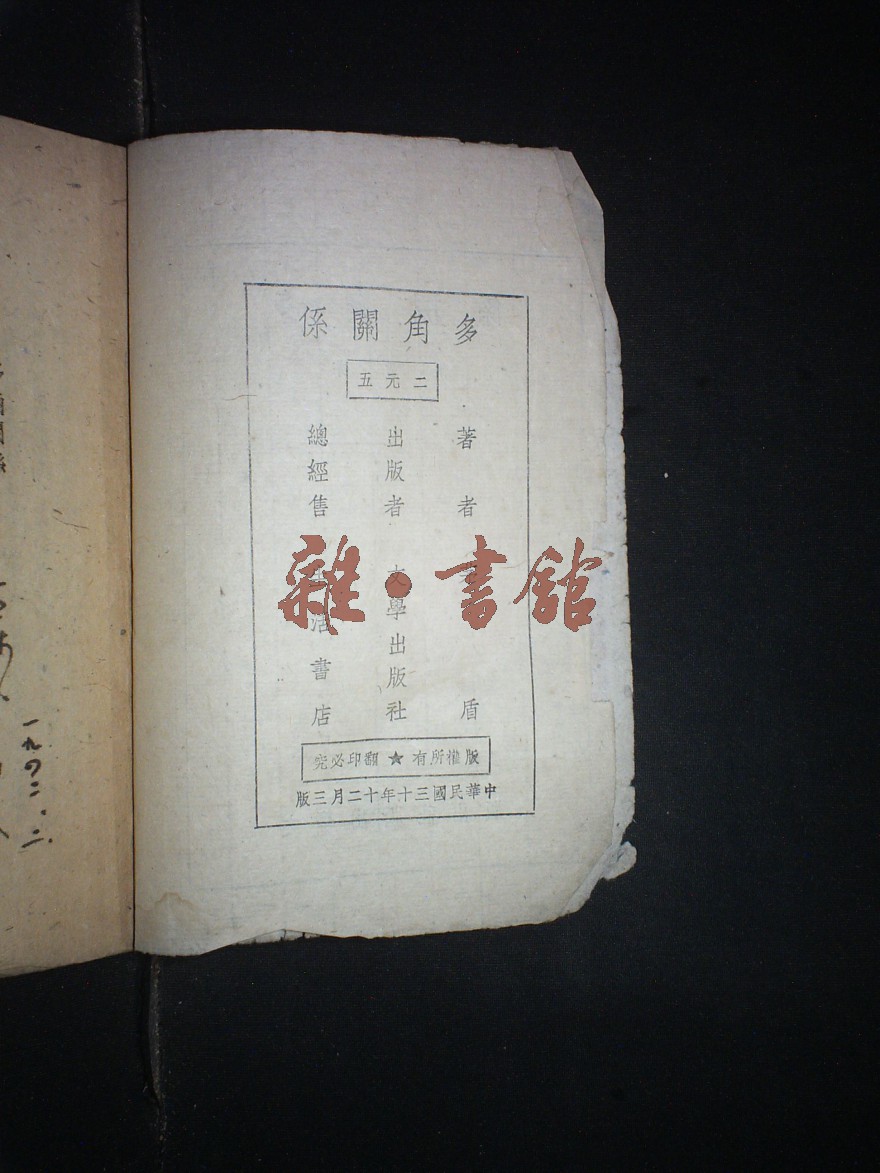 多角關係
二元五
著者 盾
出版者 文學出版社
總經售 活書店
版權所有★翻印必究
中華民國三十年十二月三版
雜·書館
一九四二.二.